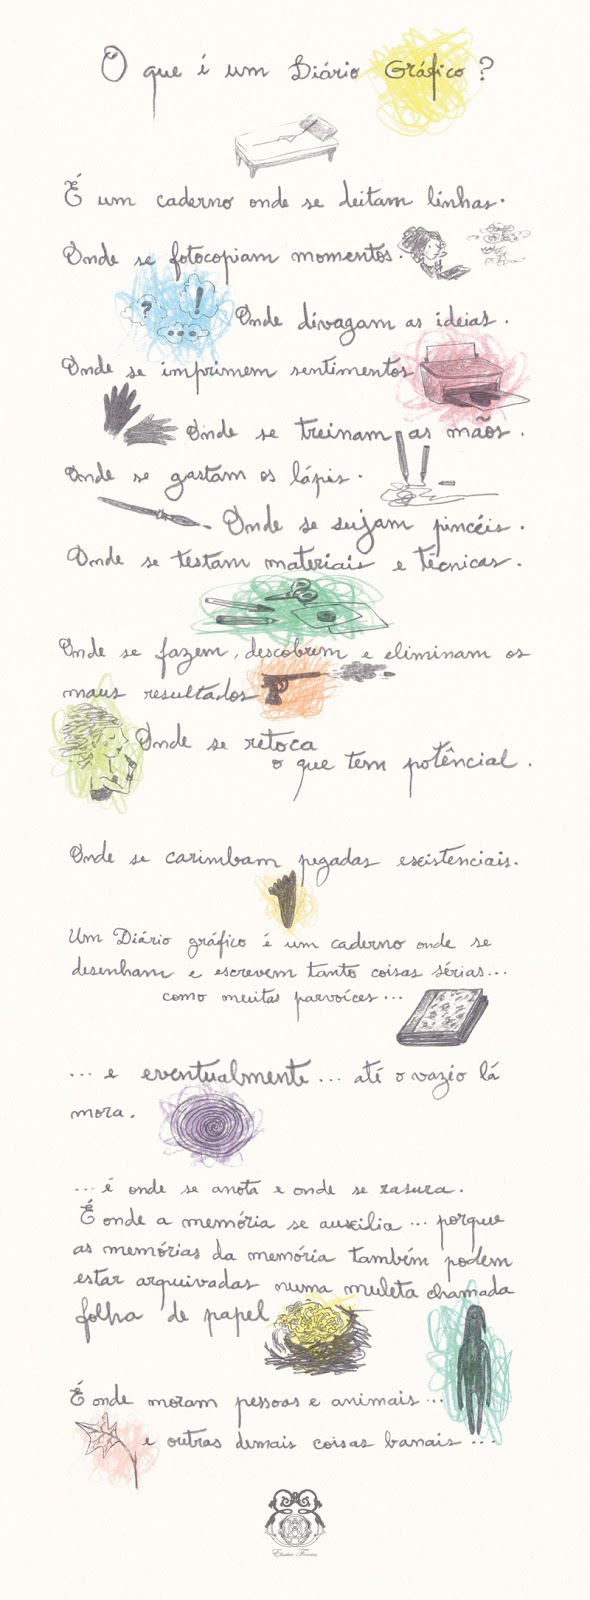 O que é um Diário Gráfico?
É um caderno onde se deitam linhas.
Onde se fotocopiam momentos.
? ! ...
Onde divagam as ideias.
Onde se imprimem sentimentos
Onde se treinam as mãos.
Onde se gastam os lápis.
Onde se sujam pincéis.
Onde se testam materiais e técnicas.
Onde se fazem, descobrem e eliminam os
maus resultados
Onde se retoca
o que tem potêncial.
Onde se carimbam pegadas existenciais.
Um Diário gráfico é um caderno onde se
desenham e escrevem tanto coisas sérias...
como muitas parvoíces...
... e eventualmente... até o vazio lá
mora.
... é onde se anota e onde se rasura.
É onde a memória se auxilia... porque
as memórias da memória também podem
estar arquivadas numa muleta chamada
folha de papel
É onde moram pessoas e animais...
e outras demais coisas banais...